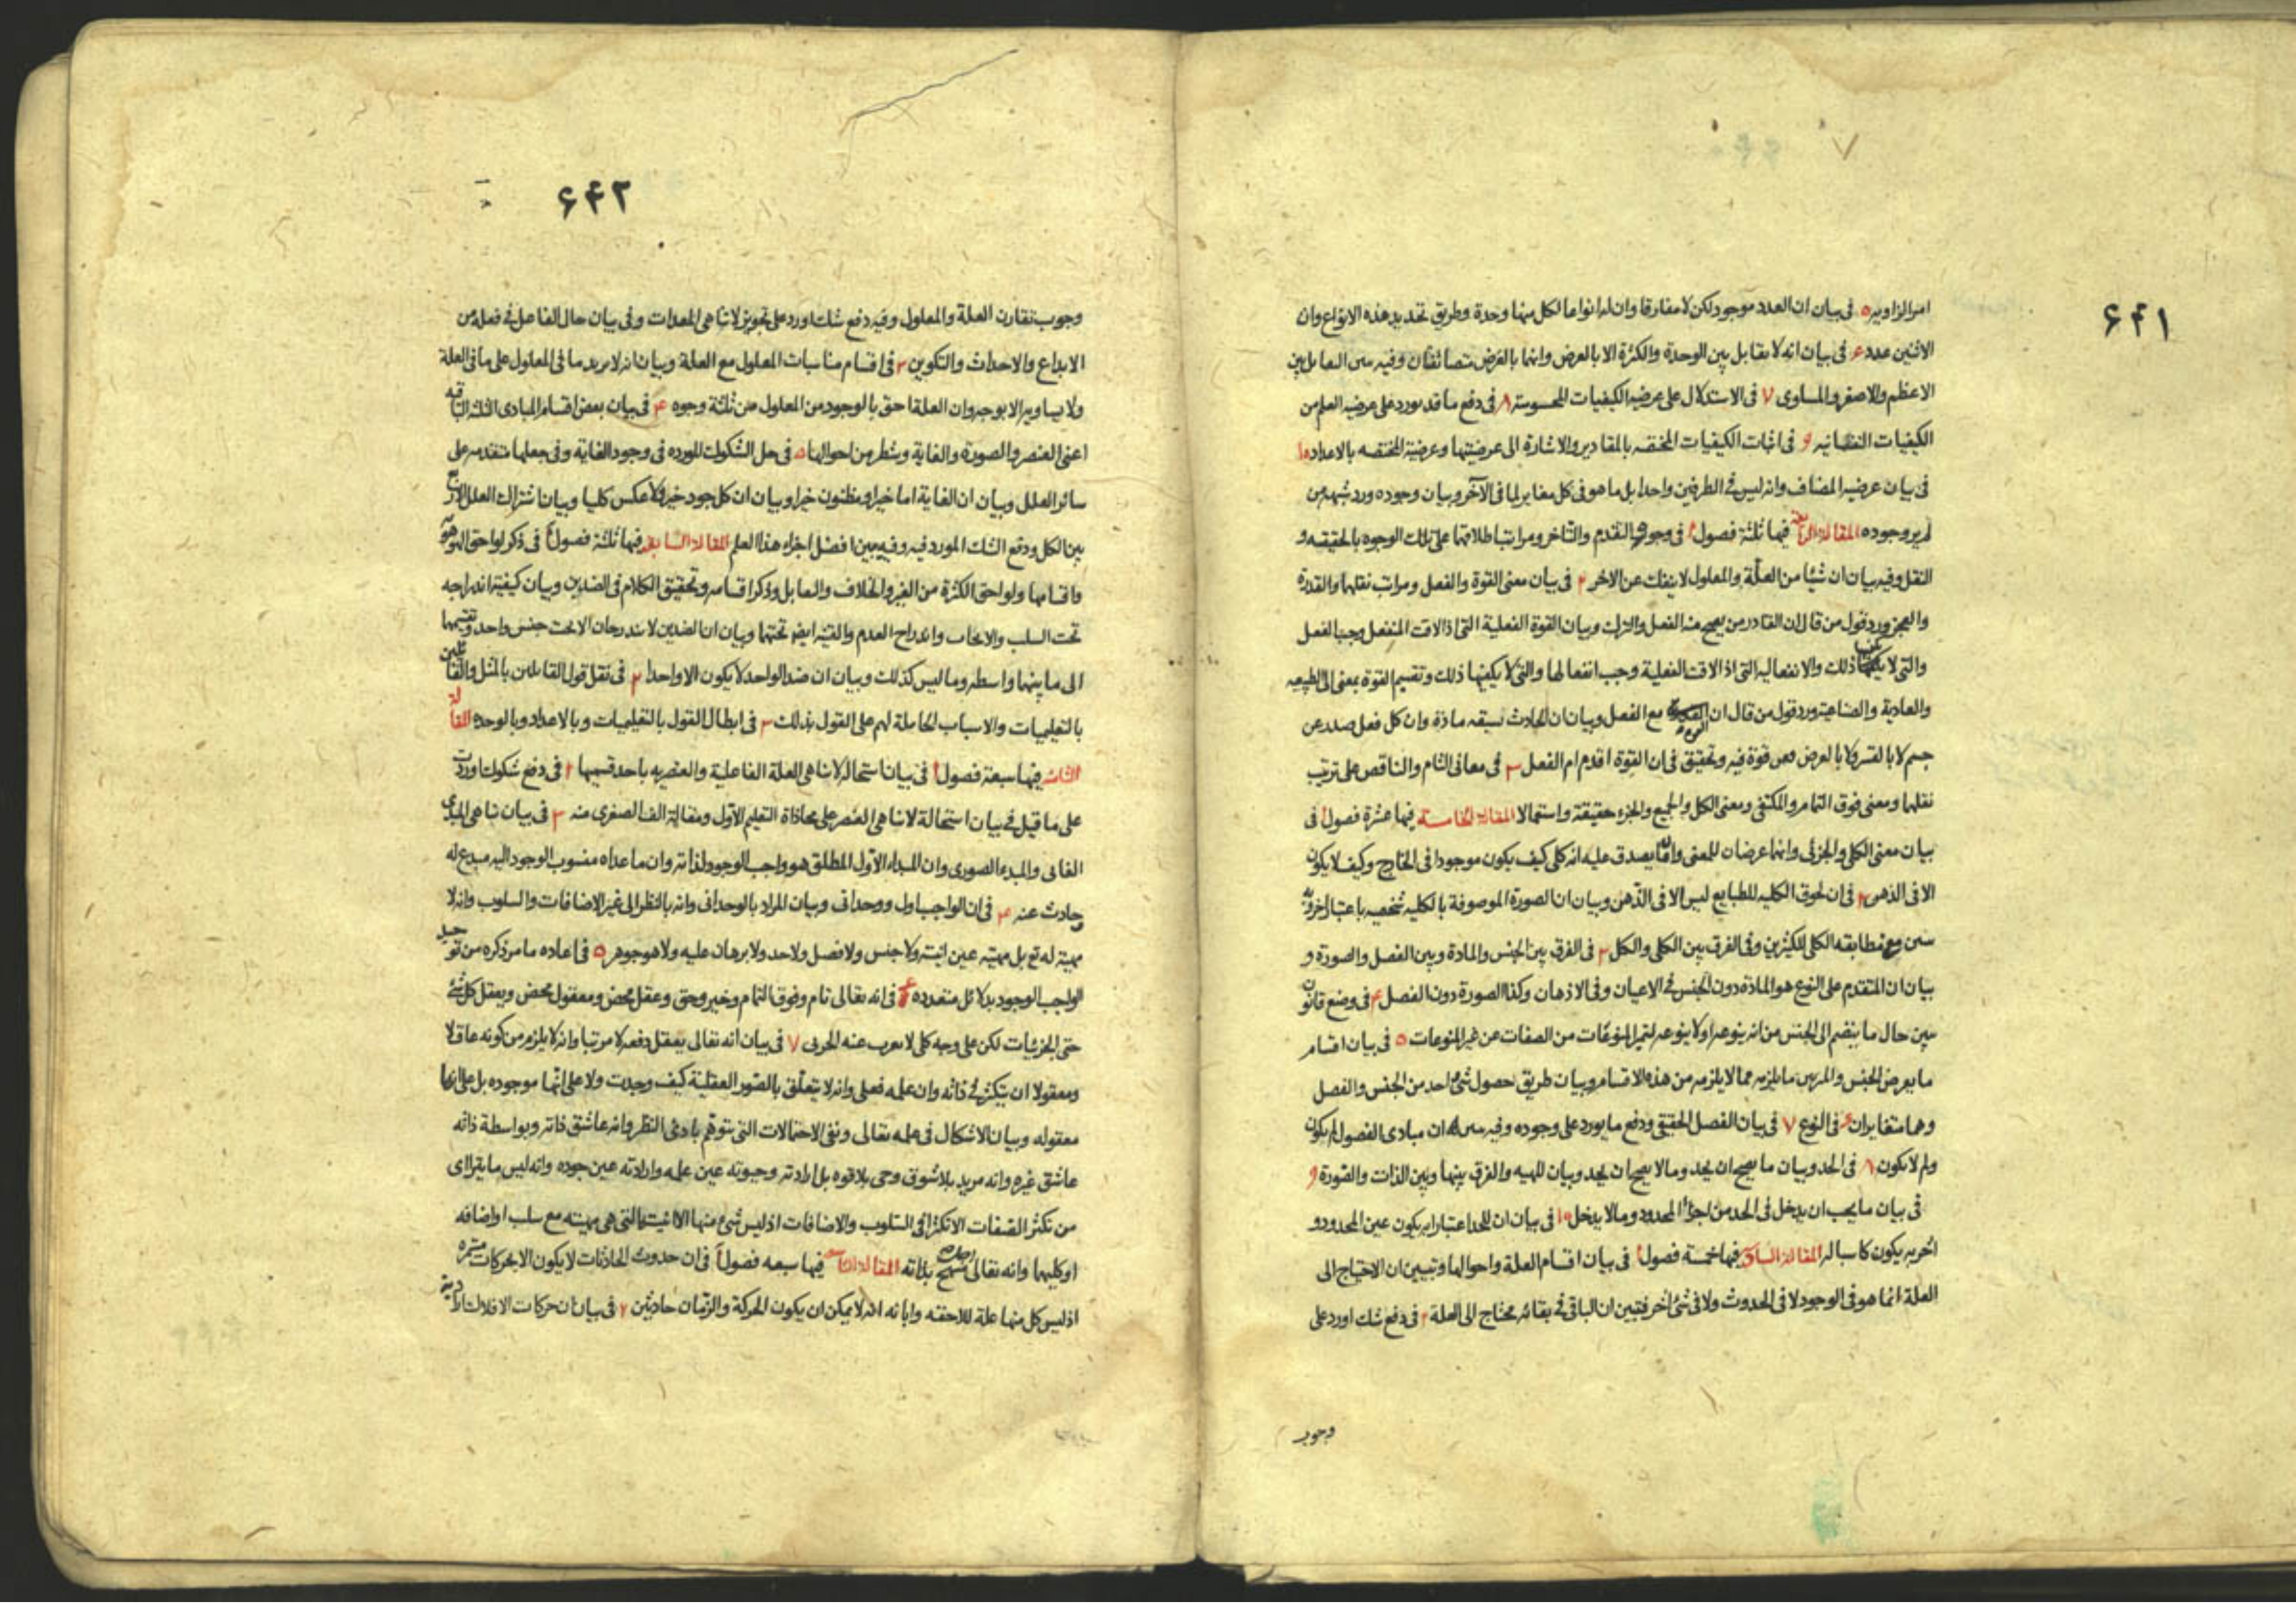 ۶۴۱
۷
امر الزاويه ۵ فى بيان ان العدد موجود لكن لا مفارقا وان له انواعا لكل منها وحدة وطريق تحديد هذه الانواع وان
الاثنين عدد ۶ فى بيان انه لا تقابل بين الوحدة والكثرة الا بالعرض وانما بالعرض متضائفان وفيه التقابل بين
الاعظم والاصغر والمساوى ۷ فى الاستدلال على عرضيه الكيفيات المحسوسة ۸ فى دفع ما قد يورد على عرضيه العلم من
الكيفيات النفسانيه ۹ فى اثبات الكيفيات المختصه بالمقادير والاشارة الى عرضيتها وعرضية المختصه بالاعداد ۱۰
فى بيان عرضيه المضاف وانه ليس فى الطرفين واحدا بل ما هو فى كل مغاير لما فى الآخر وبيان وجوده ورد شبهه من
لم ير وجوده المقالة الرابعه فيها ثلثة فصول ۱ فى وجوه التقدم والتاخر ومراتب اطلاقهما على تلك الوجوه بالحقيقه و
النقل وفيه بيان ان شيئا من العلة والمعلول لا ينفك عن الاخر ۲ فى بيان معنى القوة والفعل ومراتب نقلها والقدرة
والعجز ورد قول من قال ان القادر من يصح منه الفعل والترك وبيان القوة الفعلية التى اذا لاقت المنفعل وجب الفعل
والتى لا يكفيها ذلك والانفعاليه التى اذا لاقت الفعلية وجب انفعالها والتى لا يكفيها ذلك وتقسيم القوة بمعنى الى الطبيعيه
والعادية والصناعية ورد قول من قال ان القوة مع الفعل وبيان ان الحادث تسبقه مادة وان كل فعل صدر عن
جسم لا بالقسر ولا بالعرض فعن قوة فيه وتحقيق فى ان القوة اقدم ام الفعل ۳ فى معانى التام والناقص على ترتيب
نقلها ومعنى فوق التمام والمكتفى ومعنى الكل والجميع والجزء حقيقة واستعمالا المقالة الخامسة فيها عشرة فصول ۱ فى
بيان معنى الكلى والجزئى وانهما عرضان للمعنى وان ما يصدق عليه انه كلى كيف يكون موجودا فى الخارج وكيف لا يكون
الا فى الذهن ۲ فى ان لحوق الكليه للطبايع ليس الا فى الذهن وبيان ان الصورة الموصوفة بالكليه شخصيه باعتبار اخر وفيه
مطابقه الكلى للكثيرين وفى الفرق بين الكلى والكل ۳ فى الفرق بين الجنس والمادة وبين الفصل والصورة و
بيان ان المتقدم على النوع هو المادة دون الجنس فى الاعيان وفى الاذهان وكذا الصورة دون الفصل ۴ فى وضع قانون
يبين حال ما ينضم الى الجنس من انه ينوعه او لا ينوعه لتميز المنوعات من الصفات عن غير المنوعات ۵ فى بيان اقسام
ما يعرض الجنس ما يلزمه مما لا يلزمه من هذه الاقسام وبيان طريق حصول شئ واحد من الجنس والفصل
وهما متغايران ۶ فى النوع ۷ فى بيان الفصل الحقيقى ودفع ما يورد على وجوده وفيه ان مبادى الفصول لم يكون
ولم لا يكون ۸ فى الحد وبيان ما يصح ان يحد وما لا يصح ان يحد وبيان للمهيه والفرق بينها وبين الذات والصورة ۹
فى بيان ما يجب ان يدخل فى الحد من اجزاء المحدود وما لا يدخل ۱۰ فى بيان ان للحد اعتبارا به يكون عين المحدود و
اخر به يكون كاسبا له المقالة السادسة فيها خمسة فصول ۱ فى بيان اقسام العلة واحوالها وتبيين ان الاحتياج الى
العلة انما هو فى الوجود لا فى الحدوث ولا فى شئ اخر فتبين ان الباقى فى بقائه محتاج الى العلة ۲ فى دفع شك اورد على
وجوب
۶۴۲
وجوب تقارن العلة والمعلول وفيه دفع شك اورد على تجويز لاتناهى المعدات وفى بيان حال الفاعل فى فعله من
الابداع والاحداث والتكوين ۳ فى اقسام مناسبات المعلول مع العلة وبيان انه لا يزيد ما فى المعلول على ما فى العلة
ولا يساويه الا بوجه وان العلة احق بالوجود من المعلول من ثلثة وجوه ۴ فى بيان بعض اقسام المبادى الثلثه الباقيه
اعنى العنصر والصورة والغاية وشطر من احوالها ۵ فى حل الشكوك المورده فى وجود الغاية وفى جعلها متقدمه على
سائر العلل وبيان ان الغاية اما خير او مظنون خيرا وبيان ان كل جود خير ولا عكس كليا وبيان اشتراك العلل الاربع
بين الكل ودفع الشك المورد فيه وفيه يبين افضل اجزاء هذا العلم المقالة السابعه فيها ثلثة فصول ۱ فى ذكر لواحق الهوهويه
واقسامها ولواحق الكثرة من الغير والخلاف والتقابل وذكر اقسامه وتحقيق الكلام فى الضدين وبيان كيفية اندراجه
تحت السلب والايجاب واندراج العدم والقنيه ايضا تحتهما وبيان ان الضدين لا يندرجان الا تحت جنس واحد وتقسيمهما
الى ما بينهما واسطه وما ليس كذلك وبيان ان ضد الواحد لا يكون الا واحدا ۲ فى نقل قول القائلين بالمثل والقائلين
بالتعليميات والاسباب الحاملة لهم على القول بذلك ۳ فى ابطال القول بالتعليميات وبالاعداد وبالوحدة المقالة
الثامنه فيها سبعة فصول ۱ فى بيان استحالة لاتناهى العلة الفاعلية والعنصريه باحد قسميها ۲ فى دفع شكوك وردت
على ما قيل فى بيان استحالة لاتناهى العنصر على محاذاة التعليم الاول ومقالة الف الصغرى منه ۳ فى بيان تناهى المبدء
الغائى والمبدء الصورى وان المبداء الاول المطلق هو واجب الوجود لذاته وان ما عداه منسوب الوجود اليه مبدع له
وحادث عنه ۴ فى ان الواجب اول ووحدانى وبيان المراد بالوحدانى وانه بالنظر الى غير الاضافات والسلوب وانه لا
مهية له تع بل مهيته عين انيته ولا جنس ولا فصل ولا حد ولا برهان عليه ولا هو جوهر ۵ فى اعاده ما مر ذكره من توحيد
الواجب الوجود بدلائل متعدده ۶ فى انه تعالى تام وفوق التمام وخير وحق وعقل محض ومعقول محض ويعقل كل شئ
حتى الجزئيات لكن على وجه كلى لا يعزب عنه الجزئى ۷ فى بيان انه تعالى يعقل دفعه لا مرتبا وانه لا يلزم من كونه عاقلا
ومعقولا ان يتكثر فى ذاته وان علمه فعلى وانه لا يتعلق بالصور العقلية كيف وجدت ولا على انها موجوده بل على انها
معقوله وبيان الاشكال فى علمه تعالى ونفى الاحتمالات التى تتوهم بادئى النظر وانه عاشق ذاته وبواسطة ذاته
عاشق غيره وانه مريد بلا شوق وحى بلا قوه بل ارادته وحيوته عين علمه وارادته عين جوده وانه ليس ما يتراى
من تكثر الصفات الا تكثرا فى السلوب والاضافات اذ ليس شئ منها الا الانية التى هى مهيته مع سلب او اضافه
او كليهما وانه تعالى مبتهج بذاته المقالة التاسعه فيها سبعه فصول ۱ فى ان حدوث الحادثات لا يكون الا بحركات مستمره
اذ ليس كل منها علة للاحقه وابانه انه لا يمكن ان يكون الحركة والزمان حادثين ۲ فى بيان ان حركات الافلاك اراديه